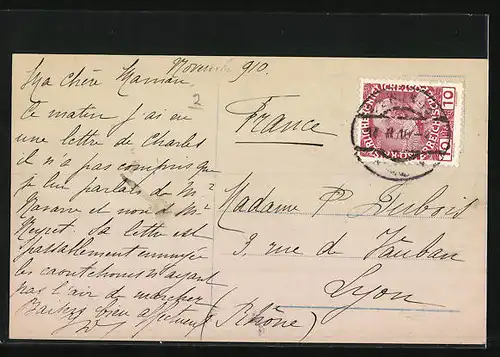 Novembre 910.
Ma chère Maman
2
Ce matin j'ai eu
une lettre de Charles
il n'a pas compris que
je lui parlais de Mr
Navarre et non de Mr
Neyret. Sa lettre est
passablement ennuyée
les caoutchoucs n'ayant
pas l'air de marcher
Baisers bien affectueux
France
Madame P Dubois
3, rue de Vauban
Lyon
(Rhône)
10
10